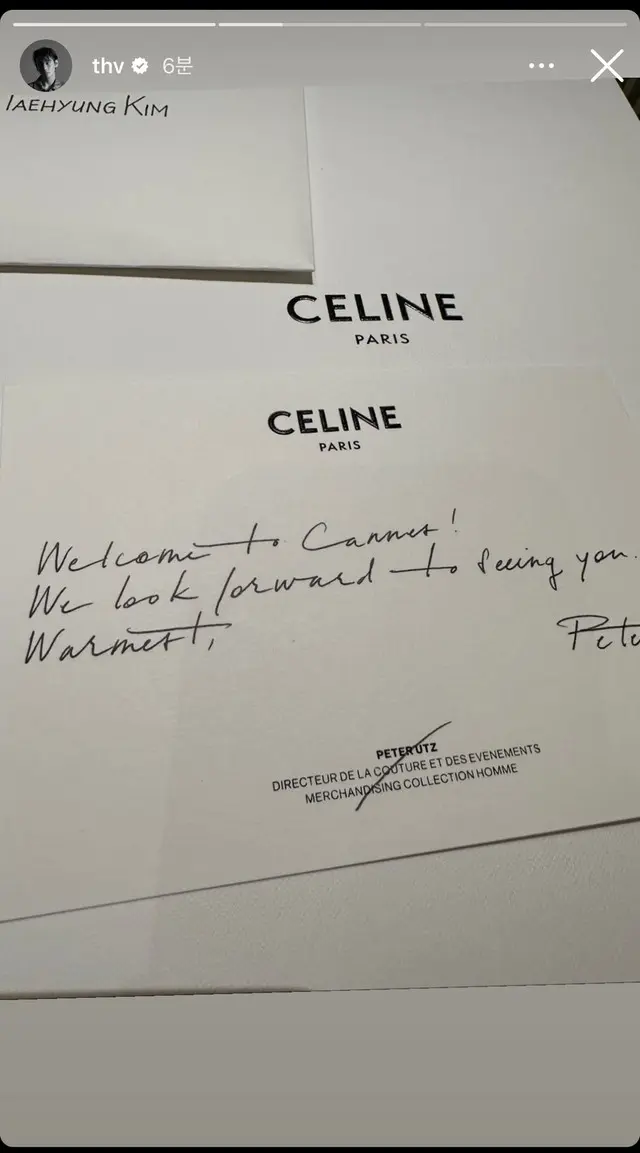 thv 6분
TAEHYUNG KIM
CELINE
PARIS
CELINE
PARIS
Welcome to Cannes!
We look forward to seeing you.
Warmest,
Pete
PETER UTZ
DIRECTEUR DE LA COUTURE ET DES EVENEMENTS
MERCHANDISING COLLECTION HOMME